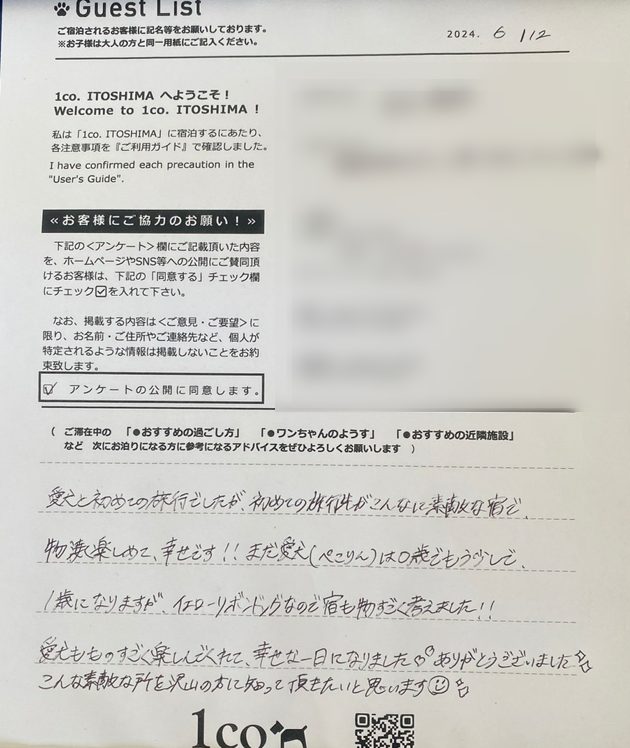 Guest List
ご宿泊されるお客様に記名等をお願いしております。
※お子様は大人の方と同一用紙にご記入ください。
2024. 6 / 12
1co. ITOSHIMA へようこそ！
Welcome to 1co. ITOSHIMA !
私は「1co. ITOSHIMA」に宿泊するにあたり、
各注意事項を『ご利用ガイド』で確認しました。
I have confirmed each precaution in the
"User's Guide".
«お客様にご協力のお願い！»
下記の<アンケート>欄にご記載頂いた内容
を、ホームページやSNS等への公開にご賛同頂
けるお客様は、下記の「同意する」チェック欄
にチェック☑を入れて下さい。
なお、掲載する内容は<ご意見・ご要望>に
限り、お名前・ご住所やご連絡先など、個人が
特定されるような情報は掲載しないことをお約
束致します。
☑ アンケートの公開に同意します。
( ご滞在中の 「●おすすめの過ごし方」 「●ワンちゃんのようす」 「●おすすめの近隣施設」
など 次にお泊りになる方に参考になるアドバイスをぜひよろしくお願いします )
愛犬と初めての旅行でしたが、初めての旅行がこんなに素敵な宿で、
物凄く楽しめて、幸せです!! まだ愛犬(ぺこりん)は0歳でもう少しで、
1歳になりますが、イエローリボンドッグなので宿も物すごく考えました!!
愛犬もものすごく楽しんでくれて、幸せな一日になりました ありがとうございました
こんな素敵な所を沢山の方に知って頂きたいと思います
1co